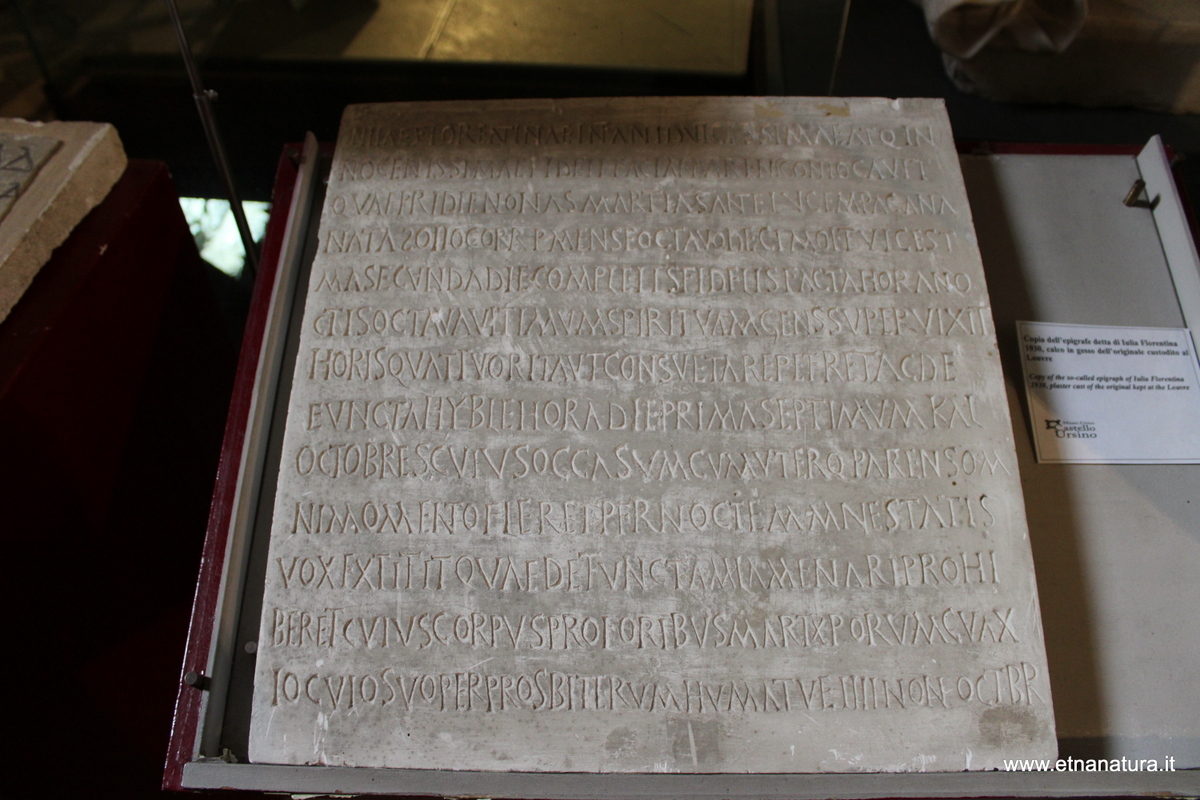 IVLIAE FLORENTINAE INFANTI DVLCISSIMAE ATQ IN
NOCENTISSIMAE FIDELI FACTAE PARENS CONLOCAVIT
QVAE PRIDIE NONAS MARTIAS ANTE LVCEM PAGANA
NATA ZOILO CORR P MENSE OCTAVO DECIMO ET VICES
MA SECVNDA DIE COMPLETIS FIDELIS FACTA HORA NO
CTIS OCTAVA VLTIMVM SPIRITVM AGENS SVPERVIXIT
HORIS QVATTVOR ITA VT CONSVETA REPETERET AC DE
FVNCTA HYBLE HORA DIE PRIMA SEPTIMVM KAL
OCTOBRES CVIVS OCCASVM CVM VTERQ PARENS OM
NI MOMENTO FLERET PER NOCTEM MAIESTATIS
VOX EXTITIT QVAE DEFVNCTAM LAMENTARI PROHI
BERET CVIVS CORPVS PRO FORIBVS MARTXPORVM CVM
LOCVLO SVO PER PROSBITERVM HVMATV E IIII NON OCTBR
Copia dell'epigrafe detta di Iulia Florentina
1930, calco in gesso dell'originale custodito al
Louvre
Copy of the so-called epigraph of Iulia Florentina
1930, plaster cast of the original kept at the Louvre
Museo Civico
Castello
Ursino
www.etnanatura.it